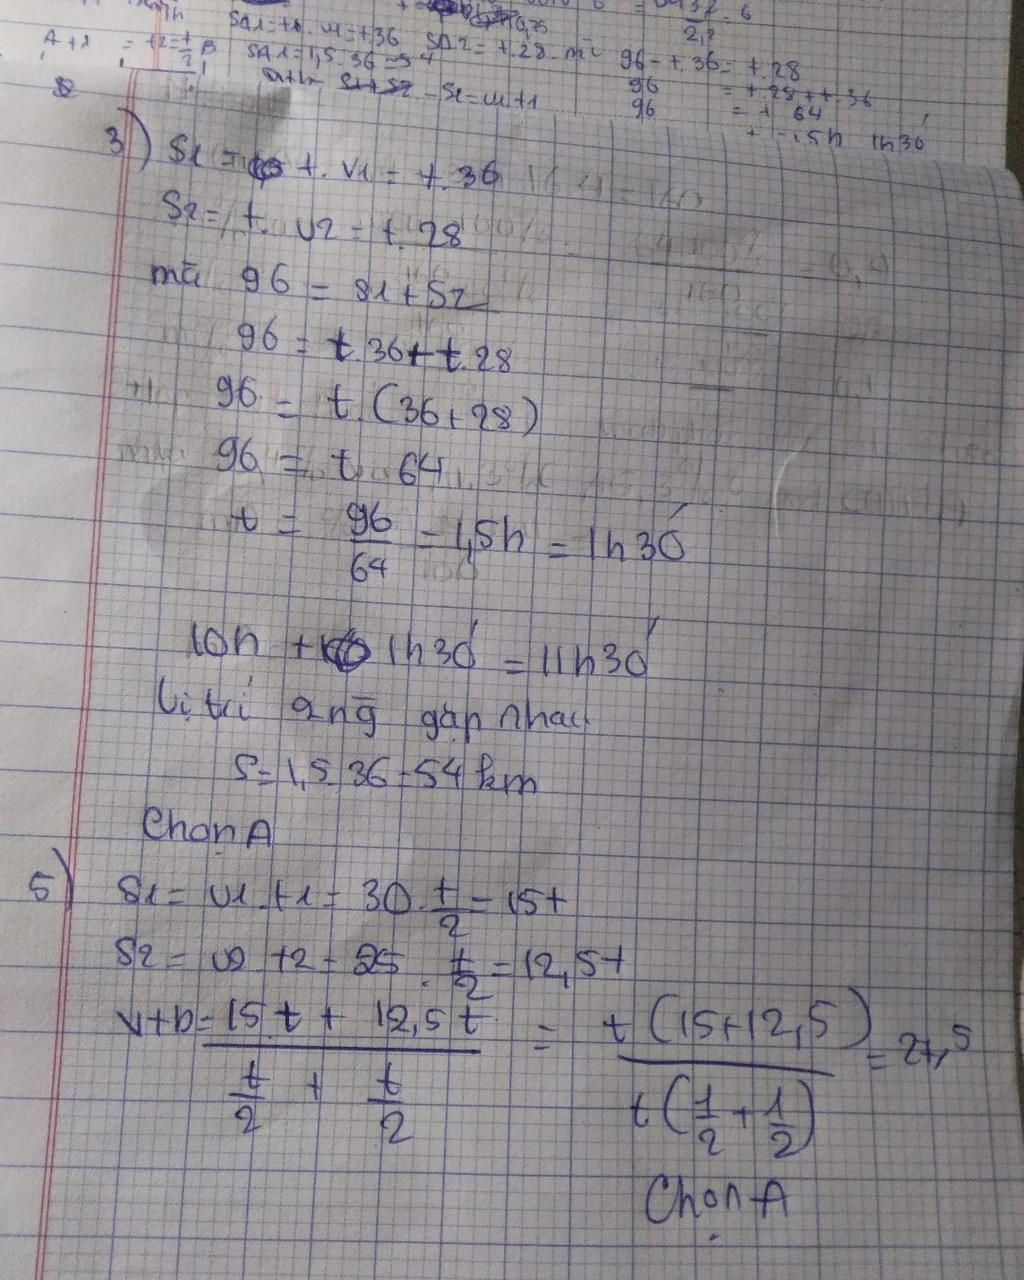 SA1 = t1. v1 = t.36
SA2 = t.28 mà
96 - t.36 = t.28
SA1 = 1,5.36 = 54
96 = t.28 + t.36
96 = t 64
t = 1,5h 1h30'
3) S1 = t. v1 = t.36
S2 = t. v2 = t.28
mà 96 = S1 + S2
96 = t.36 + t.28
96 = t.(36+28)
96 = t. 64
t = 96/64 = 1,5h = 1h30'
10h + 1h30' = 11h30'
Vị trí 2 ng̃ gặp nhau
S = 1,5.36 = 54 km
Chọn A
5) S1 = v1.t1 = 30.t/2 = 15t
S2 = v2.t2 = 25.t/2 = 12,5t
vtb = (15t + 12,5t)/(t/2 + t/2) = t(15+12,5)/t(1/2+1/2) = 27,5
Chọn A